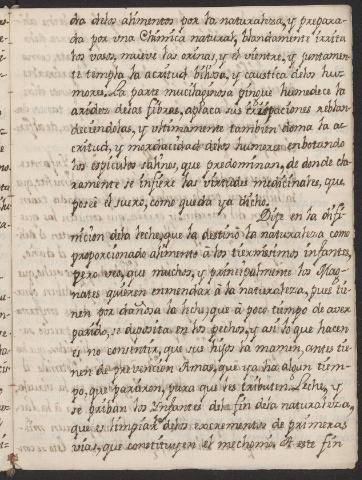 da delos alimentos por la naturaleza, y prepara-
da por vna Chimica natural, blandamente irrita
los vasos, mueve las orinas, y el vientre, y juntamen-
te templa la acritud biliosa, y caustica delos hu-
mores. La parte mucilaginosa pingue humedece la
aridez delas fibras, aplaca sus crispaciones reblan-
deciendolas, y ultimamente tambien doma la a-
critud, y mordacidad delos humores enbotando
los espiculos salinos, que predominan, de donde cla-
ramente se infiere las virtudes medicinales, que
posee el suero, como queda ya dicho.
Dije en la difi-
nicion dela leche, que la destinò la naturaleza como
proporcionado alimento à los tiernisimos infantes,
pero veo, que muchos, y principalmente los Mag-
nates quieren enmendar à la naturaleza, pues tie-
nen por dañosa la leche, que à poco tiempo de aver
parido, se deposita en los pechos, y asi lo que hacen
es no consentir, que sus hijos la mamen, antes tie-
nen de prevencion Amas, que ya ha algun tiem-
po, que parieron, para que les tributen Leche, y
se priban los Infantes del fin dela naturaleza,
que es limpiar delos excrementos de primeras
vias, que constituyen el mechonio. A este fin